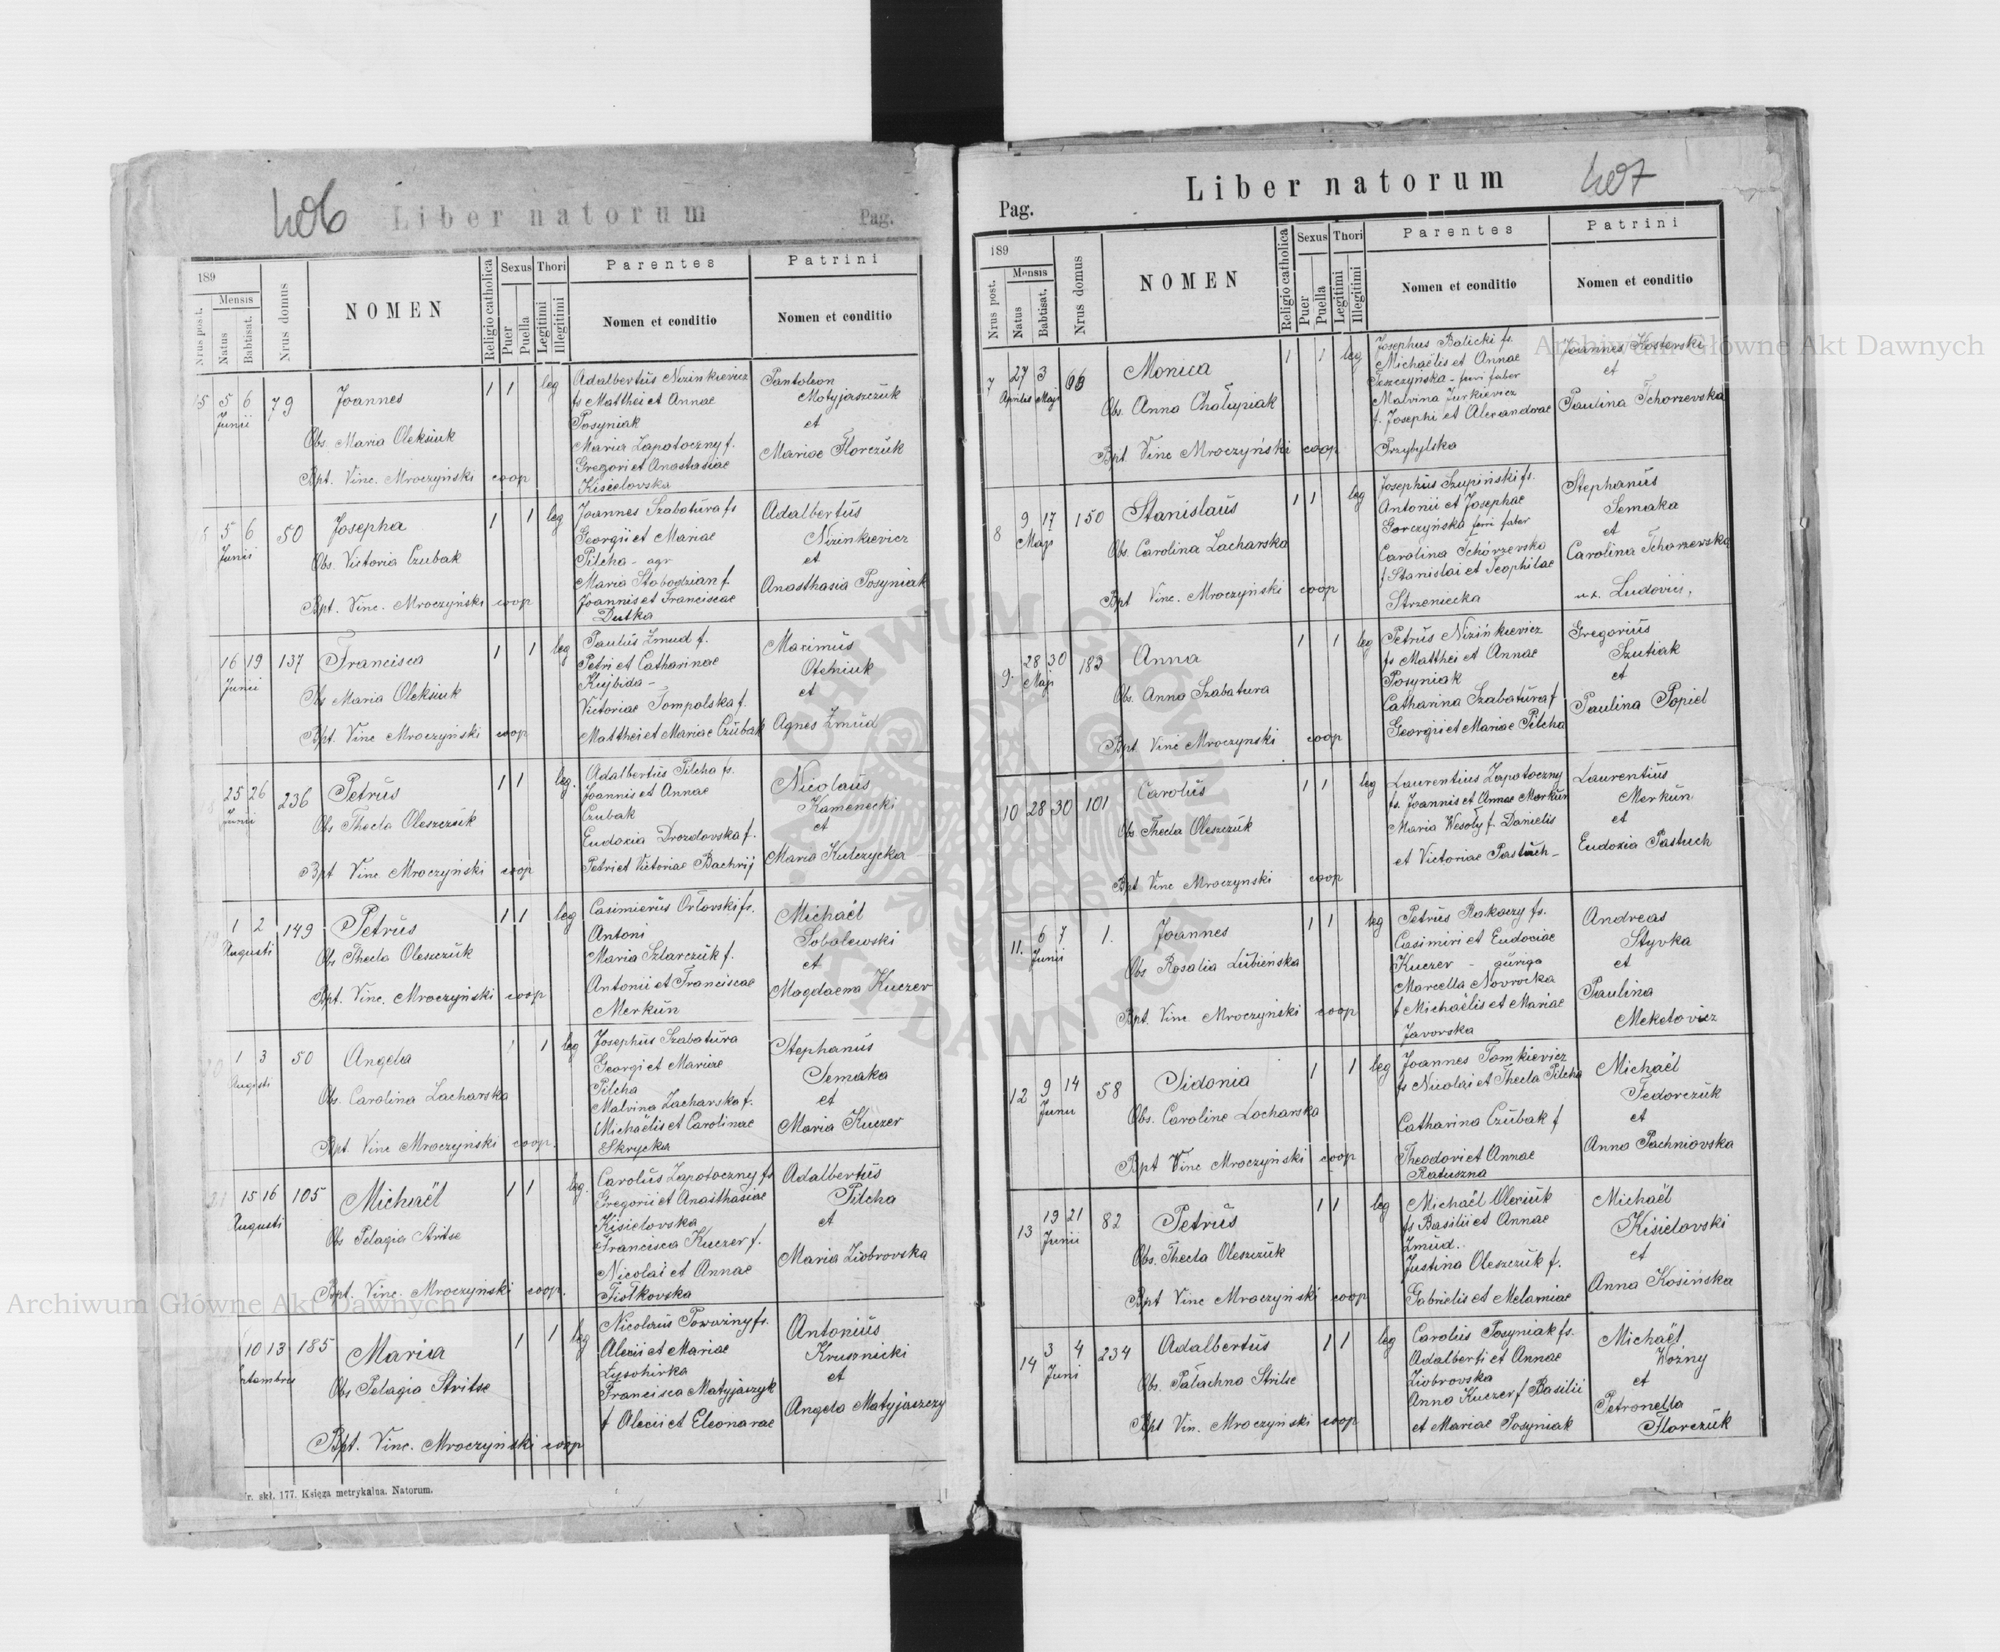 406
Liber natorum
Pag.
189
Mensis
Nrus post.
Natus
Babtisat.
Nrus domus
NOMEN
Religio catholica
Sexus
Puer
Puella
Thori
Legitimi
Illegitimi
Parentes
Nomen et conditio
Patrini
Nomen et conditio
5 5 6 79 Joannes 1 1 leg
Junii
Obs. Maria Oleksiuk
Bpt. Vinc. Mroczyński coop
Adalbertus Nizinkievicz
fs Matthei et Annae
Posyniak
Maria Zapotoczny f.
Gregori et Anastasiae
Kisielovska
Pantaleon
Matyjaszczuk
et
Mariae Florczuk
5 6 50 Josepha 1 1 leg
Junii
Obs. Victoria Czubak
Bpt. Vinc. Mroczyński coop
Joannes Szabatura fs
Georgii et Mariae
Pilcha - agr
Maria Stobodzian f.
Joannis et Franciscae
Dutka
Adalbertus
Nizinkievicz
et
Anasthasia Posyniak
16 19 137 Francisca 1 1 leg
Junii
Obs Maria Oleksiuk
Bpt. Vinc Mroczyński coop
Paulus Zmud f.
Petri et Catharinae
Kujbida -
Victoriae Tompalska f.
Matthei et Mariae Czubak
Maximus
Oleksiuk
et
Agnes Zmud
25 26 236 Petrus 1 1 leg.
Junii
Obs Thecla Oleszczuk
Bpt Vinc Mroczyński coop
Adalbertus Pilcha fs.
Joannis et Annae
Czubak
Eudoxia Drozdovska f.
Petri et Victoriae Bachrij
Nicolaus
Kamenecki
et
Maria Kulczycka
1 2 149 Petrus 1 1 leg
Augusti
Obs Thecla Oleszczuk
Bpt. Vinc. Mroczyński coop
Casimierus Orlovski fs.
Antoni
Maria Szlarczuk f.
Antonii et Franciscae
Merkun
Michaël
Sobolewski
et
Magdaena Kuczer
1 3 50 Angela 1 1 leg
Augusti
Obs. Carolina Zacharska
Bpt. Vinc Mroczyński coop.
Josephus Szabatura
Georgi et Mariae
Pilcha
Malvina Zacharska f.
Michaëlis et Carolinae
Skrycka
Stephanus
Semaka
et
Maria Kuczer
21 15 16 105 Michaël 1 1 leg.
Augusti
Obs Pelagia Stritse
Bpt. Vinc. Mroczyński coop.
Carolus Zapotoczny fs
Gregorii et Anasthasiae
Kisielovska
Francisca Kuczer f.
Nicolai et Annae
Fiolkovska
Adalbertus
Pilcha
et
Maria Ziobrovska
10 13 185 Maria 1 1 leg
Obs Pelagia Stritse
Bpt. Vinc. Mroczyński coop
Nicolaus Powoźny fs.
Alexii et Mariae
Łysohirka
Francisca Matyjaszyk
f Alexii et Eleonarae
Antonius
Krusznicki
et
Angela Matyjaszczy
Nr. skł. 177. Księga metrykalna. Natorum.
407
Liber natorum
Pag.
189
Mensis
Nrus post.
Natus
Babtisat.
Nrus domus
NOMEN
Religio catholica
Sexus
Puer
Puella
Thori
Legitimi
Illegitimi
Parentes
Nomen et conditio
Patrini
Nomen et conditio
7 27 3 66 Monica 1 1 leg
Aprilis Maji
Obs. Anna Chałupiak
Bpt. Vinc Mroczyński coop
Josephus Balicki fs.
Michaëlis et Annae
Teszczyńska - ferri faber
Malvina Jurkievicz
f. Josephi et Alexandrae
Przybylska
Joannes Kosterski
et
Paulina Tchorzevska
8 9 17 150 Stanislaus 1 1 leg
Maji
Obs. Carolina Zacharska
Bpt Vinc. Mroczyński coop
Josephus Szupiński fs.
Antonii et Josephae
Gorczyńska ferri faber
Carolina Tchórzevska
f Stanislai et Teophilae
Strzeniecka
Stephanus
Semaka
et
Carolina Tchorzevska
ux. Ludovici,
9. 28 30 183 Anna 1 1 leg
Maji
Obs. Anna Szabatura
Bpt Vinc Mroczynski coop
Petrus Nizińkievicz
fs Matthei et Annae
Posyniak
Catharina Szabatura f
Georgii et Mariae Pilcha
Gregorius
Szutiak
et
Paulina Popiel
10 28 30 101 Carolus 1 1 leg
Obs Thecla Oleszczuk
Bpt Vinc Mroczynski coop
Laurentius Zapotoczny
fs. Joannis et Annae Merkun
Maria Wesoły f. Danielis
et Victoriae Pastuch-
Laurentius
Merkun
et
Eudoxia Pastuch
11. 6 7 1. Joannes 1 1 leg
Junii
Obs Rosalia Lubieńska
Bpt. Vinc. Mroczyński coop
Petrus Rakoczy fs.
Casimiri et Eudoxiae
Kuczer - auriga
Marcella Novrocka
f Michaëlis et Mariae
Javorska
Andreas
Styvka
et
Paulina
Meketovicz
12 9 14 58 Sidonia 1 1 leg
Junii
Obs. Caroline Zacharska
Bpt Vinc Mroczyński coop
Joannes Tomkievicz
fs Nicolai et Thecla Pilcha
Catharina Czubak f
Theodori et Annae
Ratuszna
Michaël
Fedorczuk
et
Anna Pachniovska
13 19 21 82 Petrus 1 1 leg
Junii
Obs. Thecla Oleszczuk
Bpt Vinc Mroczyński coop
Michaël Olexiuk
fs Basilii et Annae
Zmud.
Justina Oleszczuk f.
Gabrielis et Melaniae
Michaël
Kisielovski
et
Anna Kosińska
14 3 4 234 Adalbertus 1 1 leg
Juni
Obs. Pałachna Stritse
Bpt Vin. Mroczyński coop
Carolus Posyniak fs.
Adalberti et Annae
Ziobrovska
Anna Kuczer f Basilii
et Mariae Posyniak
Michaël
Woźny
et
Petronella
Florczuk
Archiwum Główne Akt Dawnych
Archiwum Główne Akt Dawnych
ARCHIWUM GŁÓWNE AKT DAWNYCH